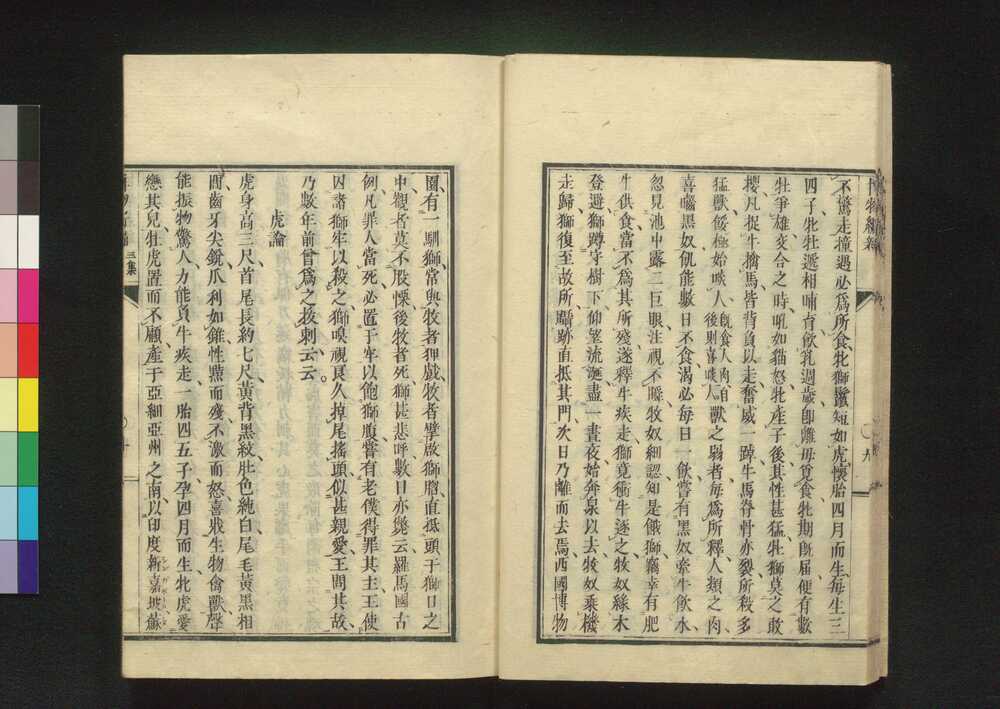 不驚走撞遇必爲所食牝獅鬣短如虎懷胎四月而生每生三
四子牝牡遞相哺育飲乳週歲卽離毋覓食牝期旣屆便有數
牡爭雄交合之時吼如猫怒牝產子後其性甚猛牡獅莫之敢
攖凡捉牛擒馬皆背負以走奮威一蹲牛馬脊骨亦裂所殺多
猛獸餒極始啖人旣食人肉自後則喜啖人獸之弱者每爲所釋人類之肉
喜囓黑奴飢能數日不食渴必每日一飲嘗有黑奴牽牛飲水
忽見池中露二巨眼注視不瞬牧奴細認知是餓獅竊幸有肥
牛供食當不爲其所殘遂釋牛疾走獅竟衝牛逐之牧奴緣木
登避獅蹲守樹下仰望流涎盡一晝夜始奔泉以去牧奴乘機
走歸獅復至故所驕跡直抵其門次日乃離而去焉西國博物
園有一馴獅常與牧者狎戲牧者擘啟獅脗直抵頭于獅口之
中觀者莫不股慄後牧者死獅甚悲呼數日亦斃云羅馬國古
例凡罪人當死必置于牢以飽獅腹嘗有老僕得罪其主王使
囚諸獅牢以殺之獅嗅視良久掉尾搖頭似甚親愛王問其故
乃數年前曾爲之拔刺云云
虎論
虎身高三尺首尾長約七尺黃背黑紋肚色純白尾毛黃黑相
間齒牙尖銳爪利如錐性鷙而殘不激而怒喜戕生物禽獸聲
能振物驚人力能負牛疾走一胎四五子孕四月而生牝虎愛
戀其兒牡虎置而不顧產于亞細亞州之南以印度新嘉坡蘇
三集
九